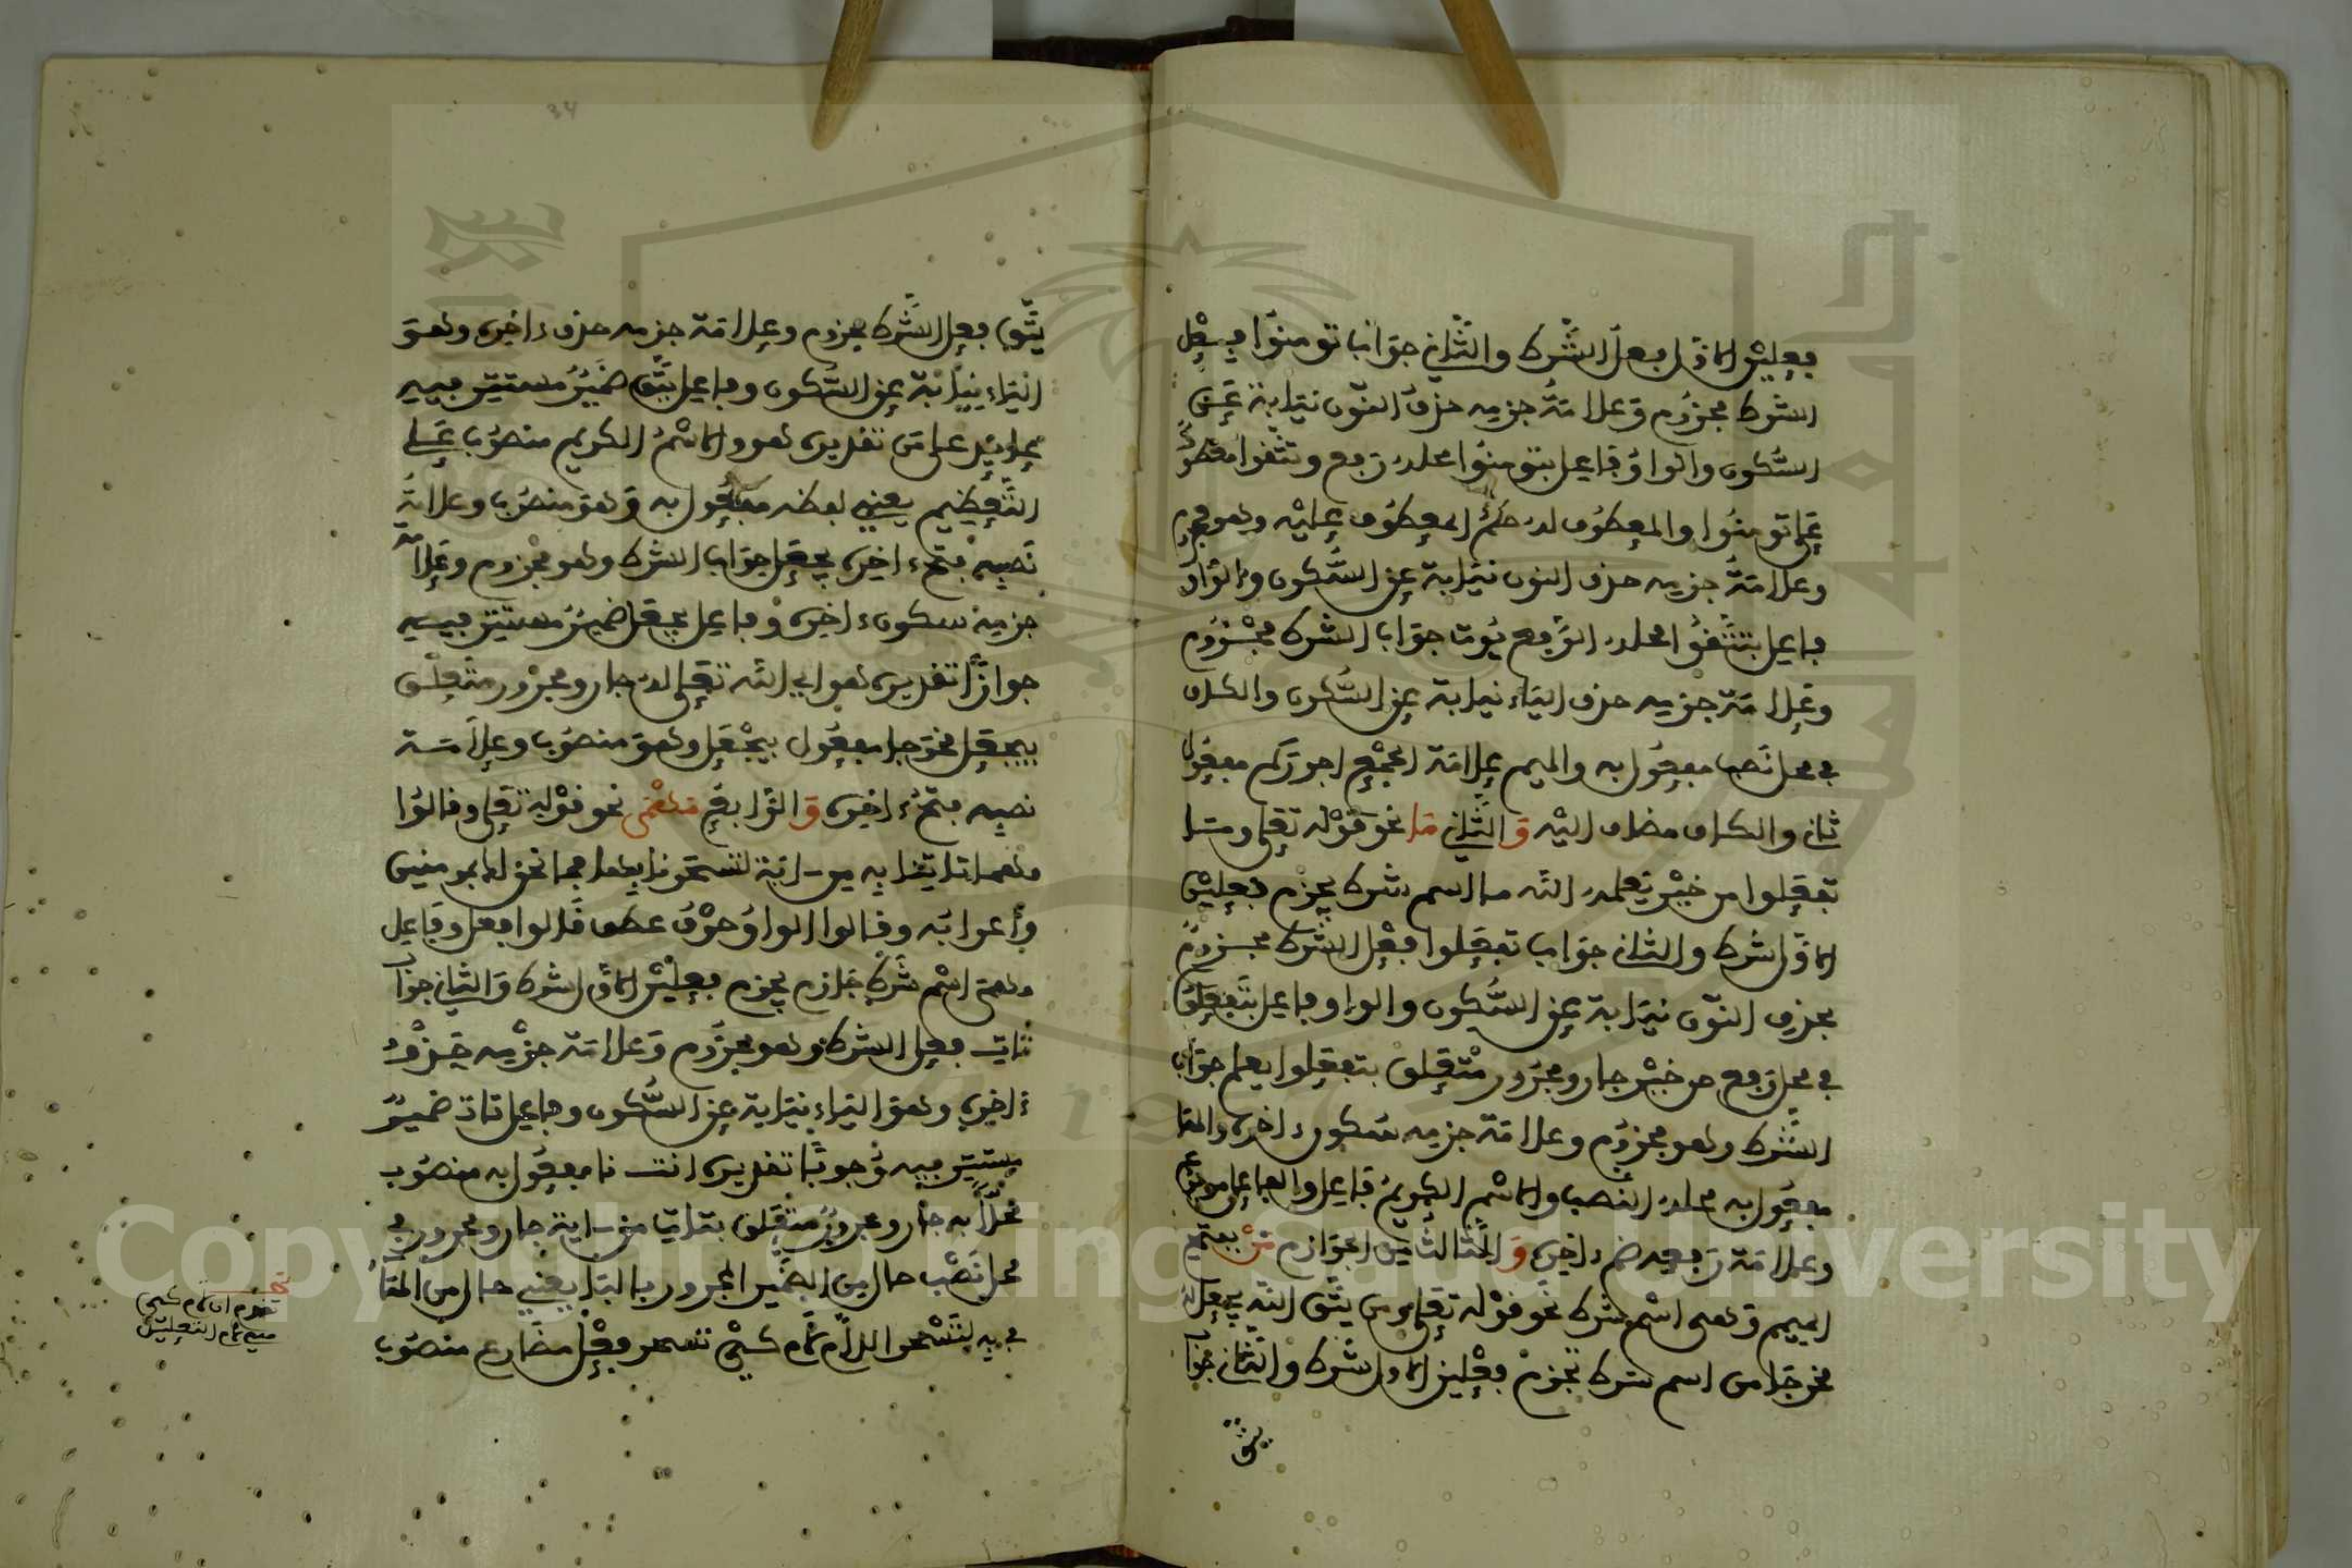 فعلين الاول فعل الشرط والثاني جوابا تومنوا فعل
الشرط مجزوم وعلامة جزمه حذف النون نيابة عن
السكون والواو فاعل بتومنوا محله رفع وتتقوا معطوف
على تومنوا والمعطوف له حكم المعطوف عليه وهو مجزوم
وعلامة جزمه حذف النون نيابة عن السكون والواو
فاعل بتتقوا محله الرفع يوت جواب الشرط مجزوم
وعلامة جزمه حذف الياء نيابة عن السكون والكاف
في محل نصب مفعول به والميم علامة الجمع اجوركم مفعول
ثاني والكاف مضاف اليه والثاني ما نحو قوله تعلى وما
تفعلوا من خير يعلمه الله ما اسم شرط يجزم فعلين
الاول شرط والثاني جواب تفعلوا فعل الشرط مجزوم
بحذف النون نيابة عن السكون والواو فاعل بتفعلوا
في محل رفع من خير جار ومجرور متعلق بتفعلوا يعلم جواب
الشرط وهو مجزوم وعلامة جزمه سكون ءاخره والها
مفعول به محله النصب والاسم الكريم فاعل والفاعل مرفوع
وعلامة رفعه ضم ءاخره والثالث من الجوازم من بفتح
الميم وهي اسم شرط نحو قوله تعلى ومن يتق الله يجعل له
مخرجا من اسم شرط تجزم فعلين الاول شرط والثاني جواب
يتق
34
يتق فعل الشرط مجزوم وعلامة جزمه حذف ءاخره وهو
الياء نيابة عن السكون وفاعل يتق ضمير مستتر فيه
عائد على من تقديره هو والاسم الكريم منصوب على
التعظيم يعني لفظه مفعول به وهو منصوب وعلامة
نصبه فتح ءاخره يجعل جواب الشرط وهو مجزوم وعلامة
جزمه سكون ءاخره وفاعل يجعل ضمير مستتر فيه
جوازا تقديره هو اي الله تعلى له جار ومجرور متعلق
بيجعل مخرجا مفعول بيجعل وهو منصوب وعلامة
نصبه فتح ءاخره والرابع مهمى نحو قوله تعلى وقالوا
مهما تاتنا به من ءاية لتسحرنا بها فما نحن لك بمومنين
واعرابه وقالوا الواو حرف عطف قالوا فعل وفاعل
مهمى اسم شرط جازم يجزم فعلين الاول شرط والثاني جواب
تات فعل الشرط وهو مجزوم وعلامة جزمه حذف
ءاخره وهو الياء نيابة عن السكون وفاعل تات ضمير
مستتر فيه وجوبا تقديره انت نا مفعول به منصوب
محلا به جار ومجرور متعلق بتاتنا من ءاية جار ومجرور في
محل نصب حال من الضمير المجرور بالبا يعني حال من الها
في به لتسحر اللام لام كي تسحر فعل مضارع منصوب
تقدم ان لام كي
هي لام التعليل
Copyright © King Saud University